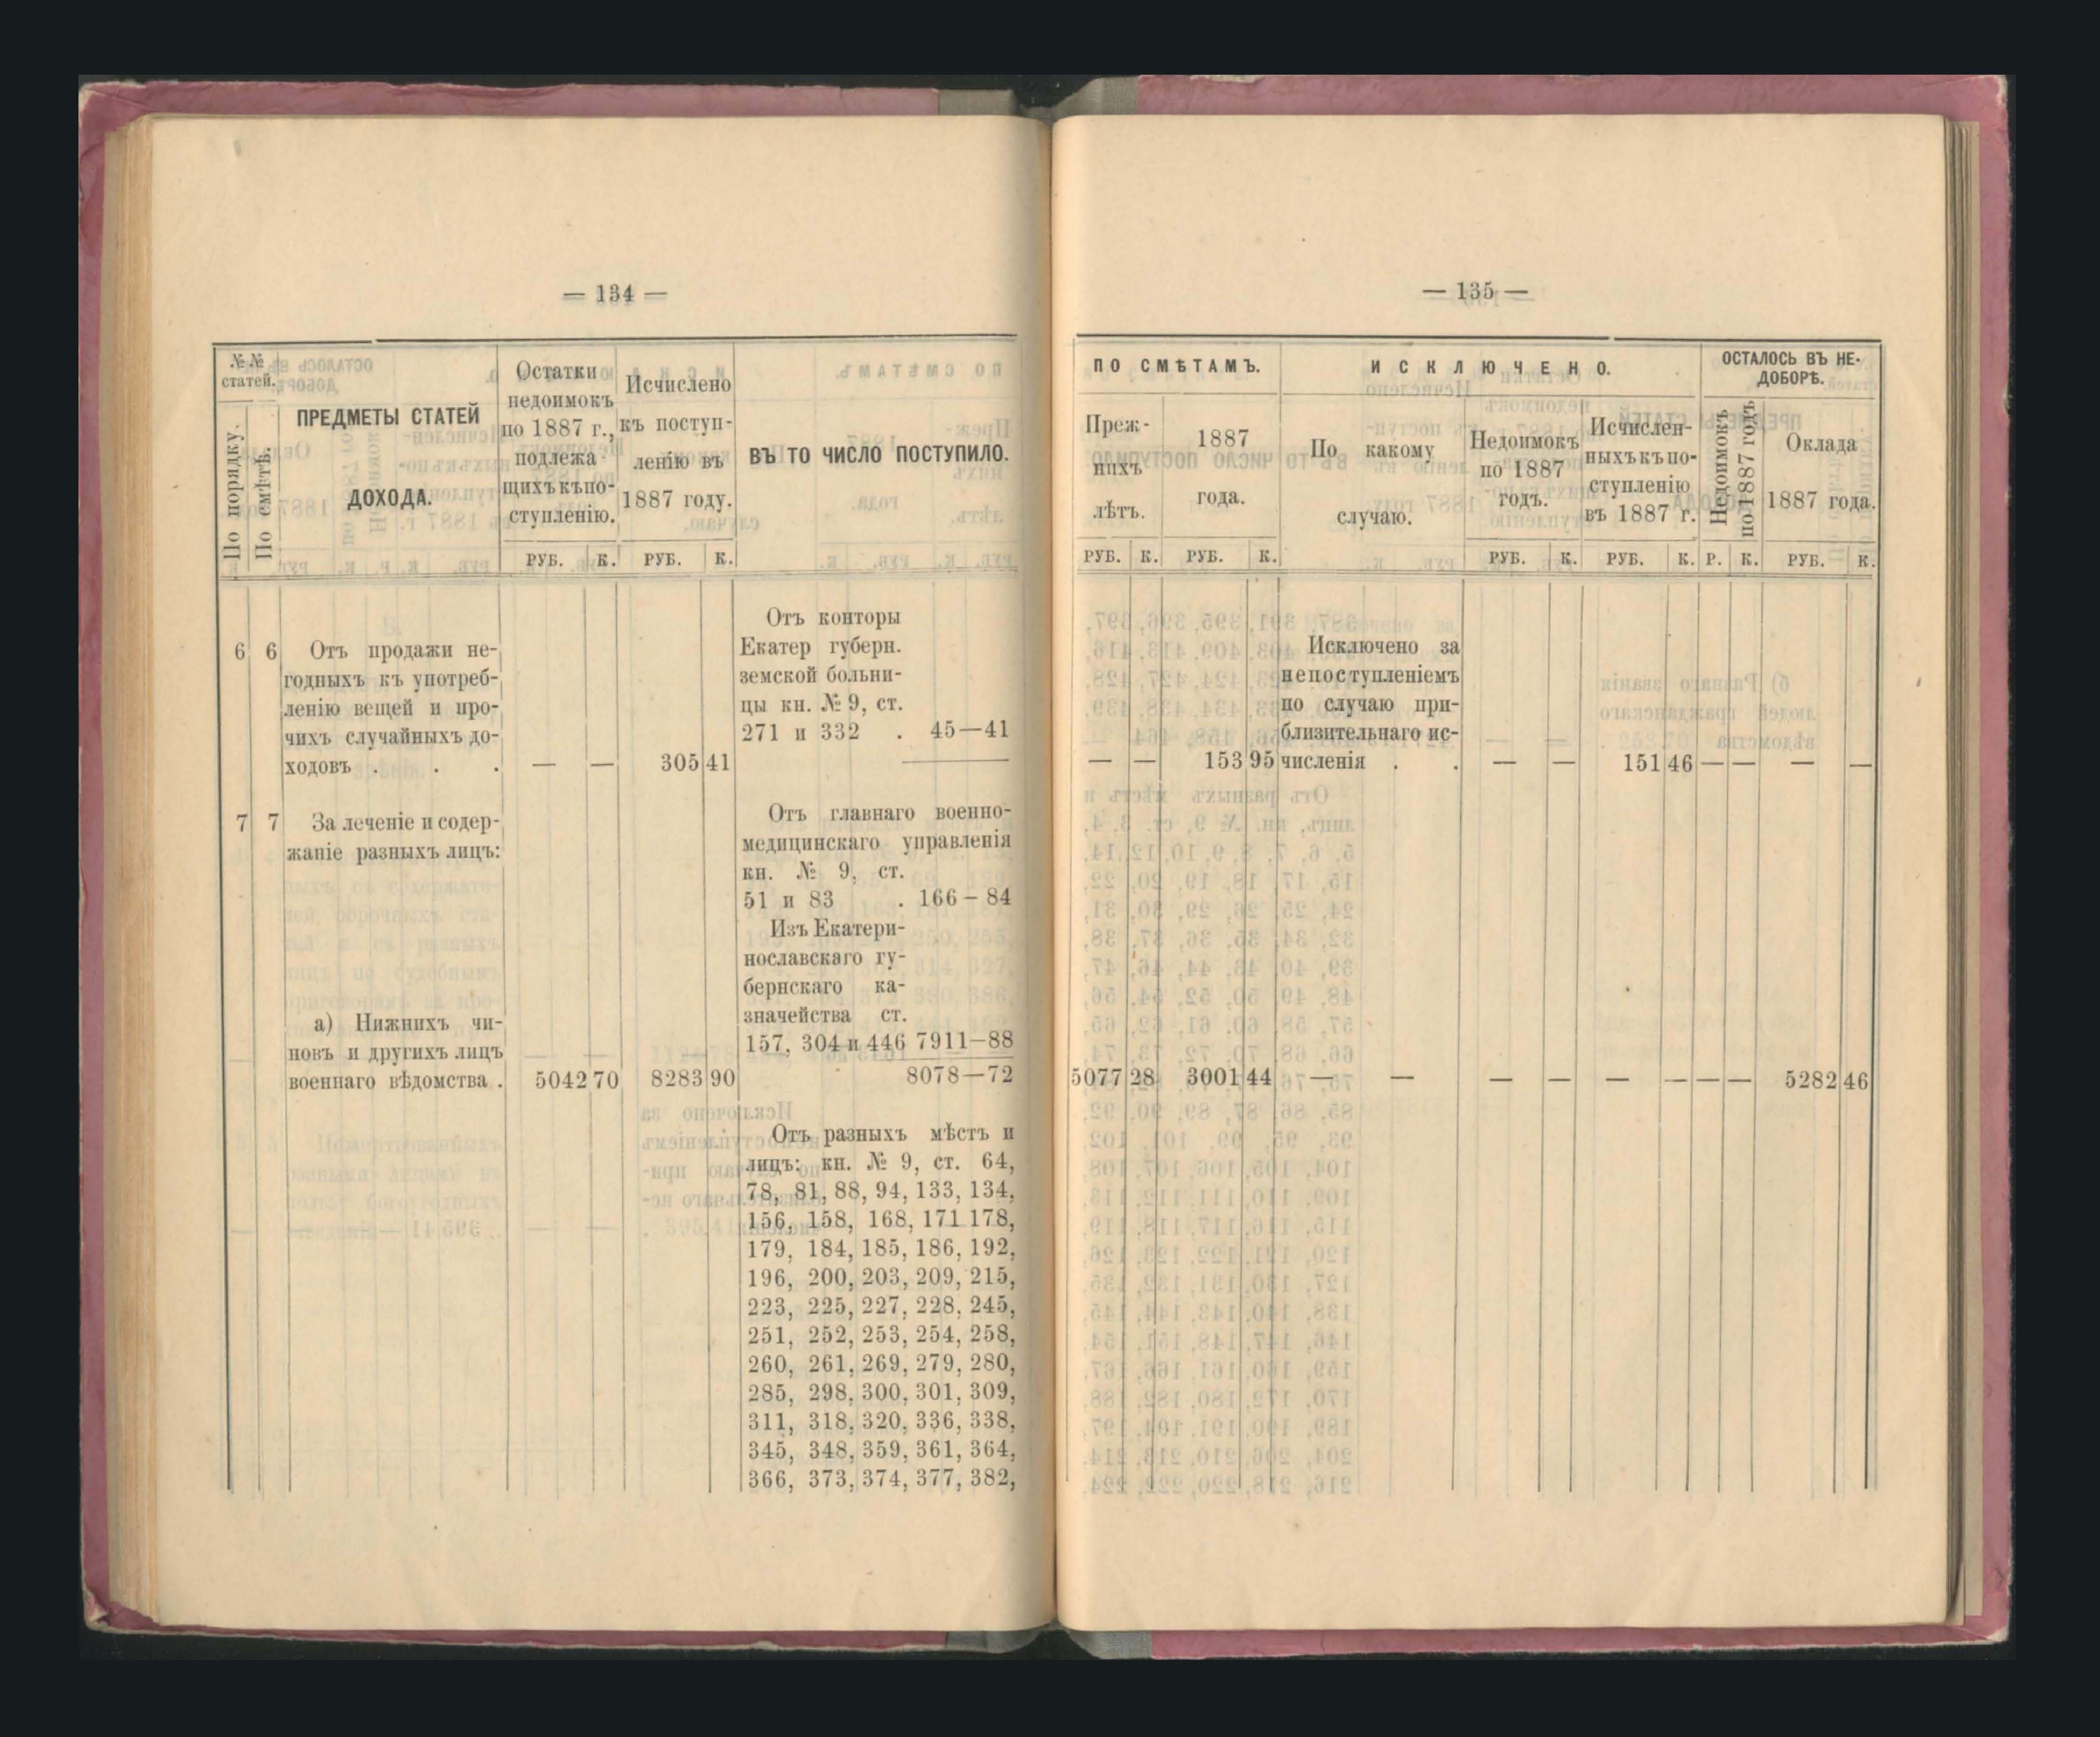 — 134 —
№№ статей.
По порядку.
По смѣтѣ.
ПРЕДМЕТЫ СТАТЕЙ
ДОХОДА.
Остатки
недоимокъ
по 1887 г.,
подлежа-
щихъ къ по-
ступленію.
Исчислено
къ поступ-
ленію въ
1887 году.
ВЪ ТО ЧИСЛО ПОСТУПИЛО.
РУБ. К. РУБ. К.
6 6 Отъ продажи не-
годныхъ къ употреб-
ленію вещей и про-
чихъ случайныхъ до-
ходовъ . . . — — 305 41
Отъ конторы
Екатер губерн.
земской больни-
цы кн. № 9, ст.
271 и 332 . 45—41
7 7 За леченіе и содер-
жаніе разныхъ лицъ:
а) Нижнихъ чи-
новъ и другихъ лицъ
военнаго вѣдомства . 5042 70 8283 90
Отъ главнаго военно-
медицинскаго управленія
кн. № 9, ст.
51 и 83 . 166—84
Изъ Екатери-
нославскаго гу-
бернскаго ка-
значейства ст.
157, 304 и 446 7911—88
8078—72
Отъ разныхъ мѣстъ и
лицъ: кн. № 9, ст. 64,
78, 81, 88, 94, 133, 134,
156, 158, 168, 171 178,
179, 184, 185, 186, 192,
196, 200, 203, 209, 215,
223, 225, 227, 228, 245,
251, 252, 253, 254, 258,
260, 261, 269, 279, 280,
285, 298, 300, 301, 309,
311, 318, 320, 336, 338,
345, 348, 359, 361, 364,
366, 373, 374, 377, 382,
— 135 —
ПО СМѢТАМЪ.
ИСКЛЮЧЕНО.
ОСТАЛОСЬ ВЪ НЕ-
ДОБОРѢ.
Преж-
нихъ
лѣтъ.
1887
года.
По какому
случаю.
Недоимокъ
по 1887
годъ.
Исчислен-
ныхъ къ по-
ступленію
въ 1887 г.
Недоимокъ
по 1887 годъ
Оклада
1887 года.
РУБ. К. РУБ. К. РУБ. К. РУБ. К. Р. К. РУБ. К.
Исключено за
непоступленіемъ
по случаю при-
близительнаго ис-
— — 153 95 численія . . — — 151 46 — — — —
5077 28 3001 44 — — — — — — — — 5282 46